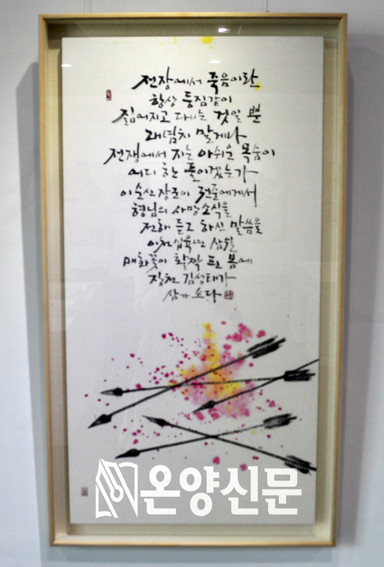 전장에서 죽음이란
항상 등짐같이
짊어지고 다니는 것일 뿐
괘념치 말게나
전쟁에서 지는 아쉬운 목숨이
어디 한 둘이겠는가
이순신 장군이 전준에게서
형님의 사망 소식을
전해 듣고 하신 말씀을
이천십육년 삼월
매화꽃이 활짝 핀 봄에
김성태가
쓰다
온양신문